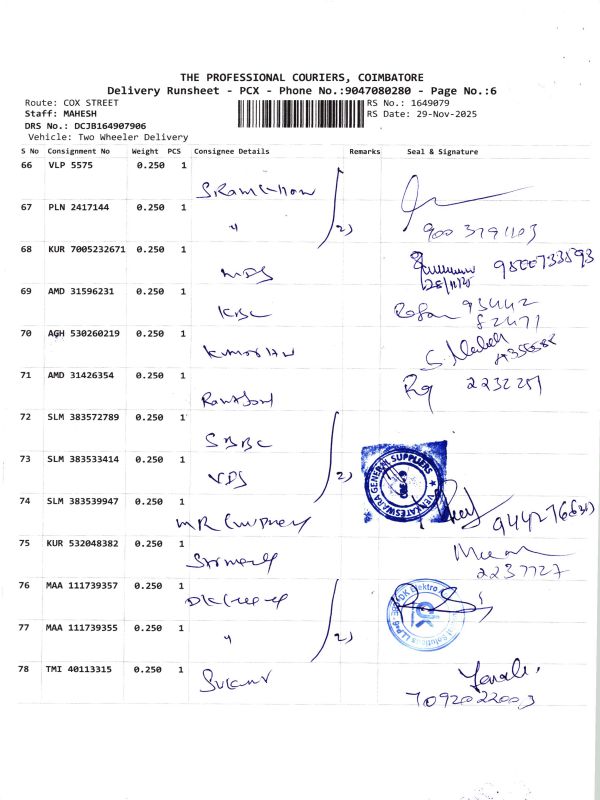 THE PROFESSIONAL COURIERS, COIMBATORE
Delivery Runsheet - PCX - Phone No.:9047080280 - Page No.:6
Route: COX STREET
RS No.: 1649079
Staff: MAHESH
RS Date: 29-Nov-2025
DRS No.: DCJB164907906
Vehicle: Two Wheeler Delivery
S No Consignment No Weight PCS Consignee Details Remarks Seal & Signature
66 VLP 5575 0.250 1
67 PLN 2417144 0.250 1
2)
68 KUR 7005232671 0.250 1
MDS
9500733593
69 AMD 31596231 0.250 1
KBC
93442
82471
70 AGH 530260219 0.250 1
71 AMD 31426354 0.250 1
2232251
72 SLM 383572789 0.250 1
SBBC
73 SLM 383533414 0.250 1
VDS 2)
VENKATESWARA GENERAL SUPPLIERS
74 SLM 383539947 0.250 1
75 KUR 532048382 0.250 1
2237727
76 MAA 111739357 0.250 1
DK Elektro
77 MAA 111739355 0.250 1
2)
78 TMI 40113315 0.250 1
7092022003